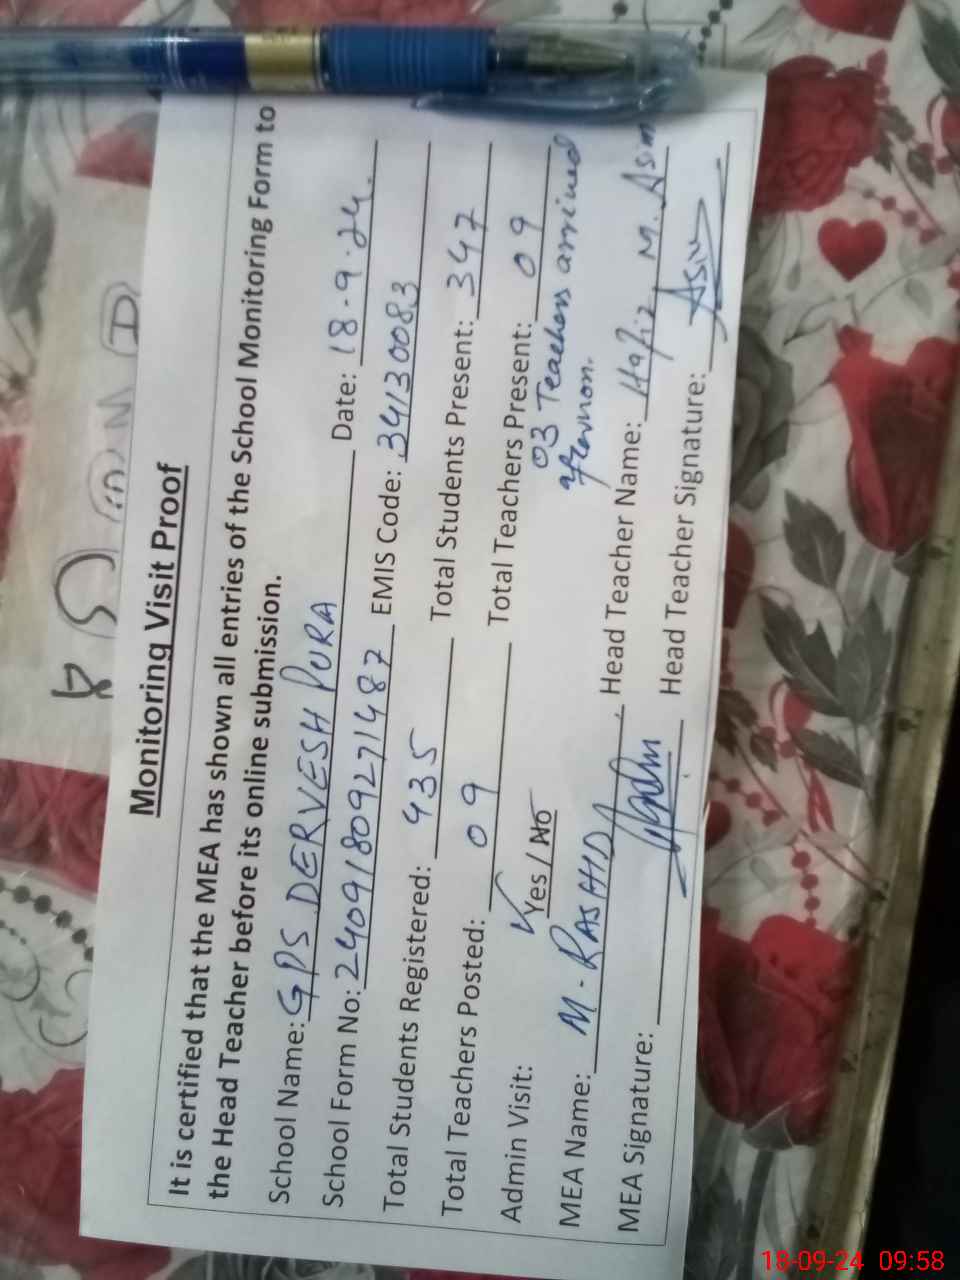 Monitoring Visit Proof
It is certified that the MEA has shown all entries of the School Monitoring Form to
the Head Teacher before its online submission.
School Name: GPS DERVESH PURA Date: 18-9-24.
School Form No: 24091809271487 EMIS Code: 34130083
Total Students Registered: 435 Total Students Present: 347
Total Teachers Posted: 09 Total Teachers Present: 09
03 Teachers arrived
afternon.
Admin Visit: ✓Yes / No
MEA Name: M. RASHID, Head Teacher Name: Hafiz M. Asim
MEA Signature: Head Teacher Signature: Asim
18-09-24 09:58